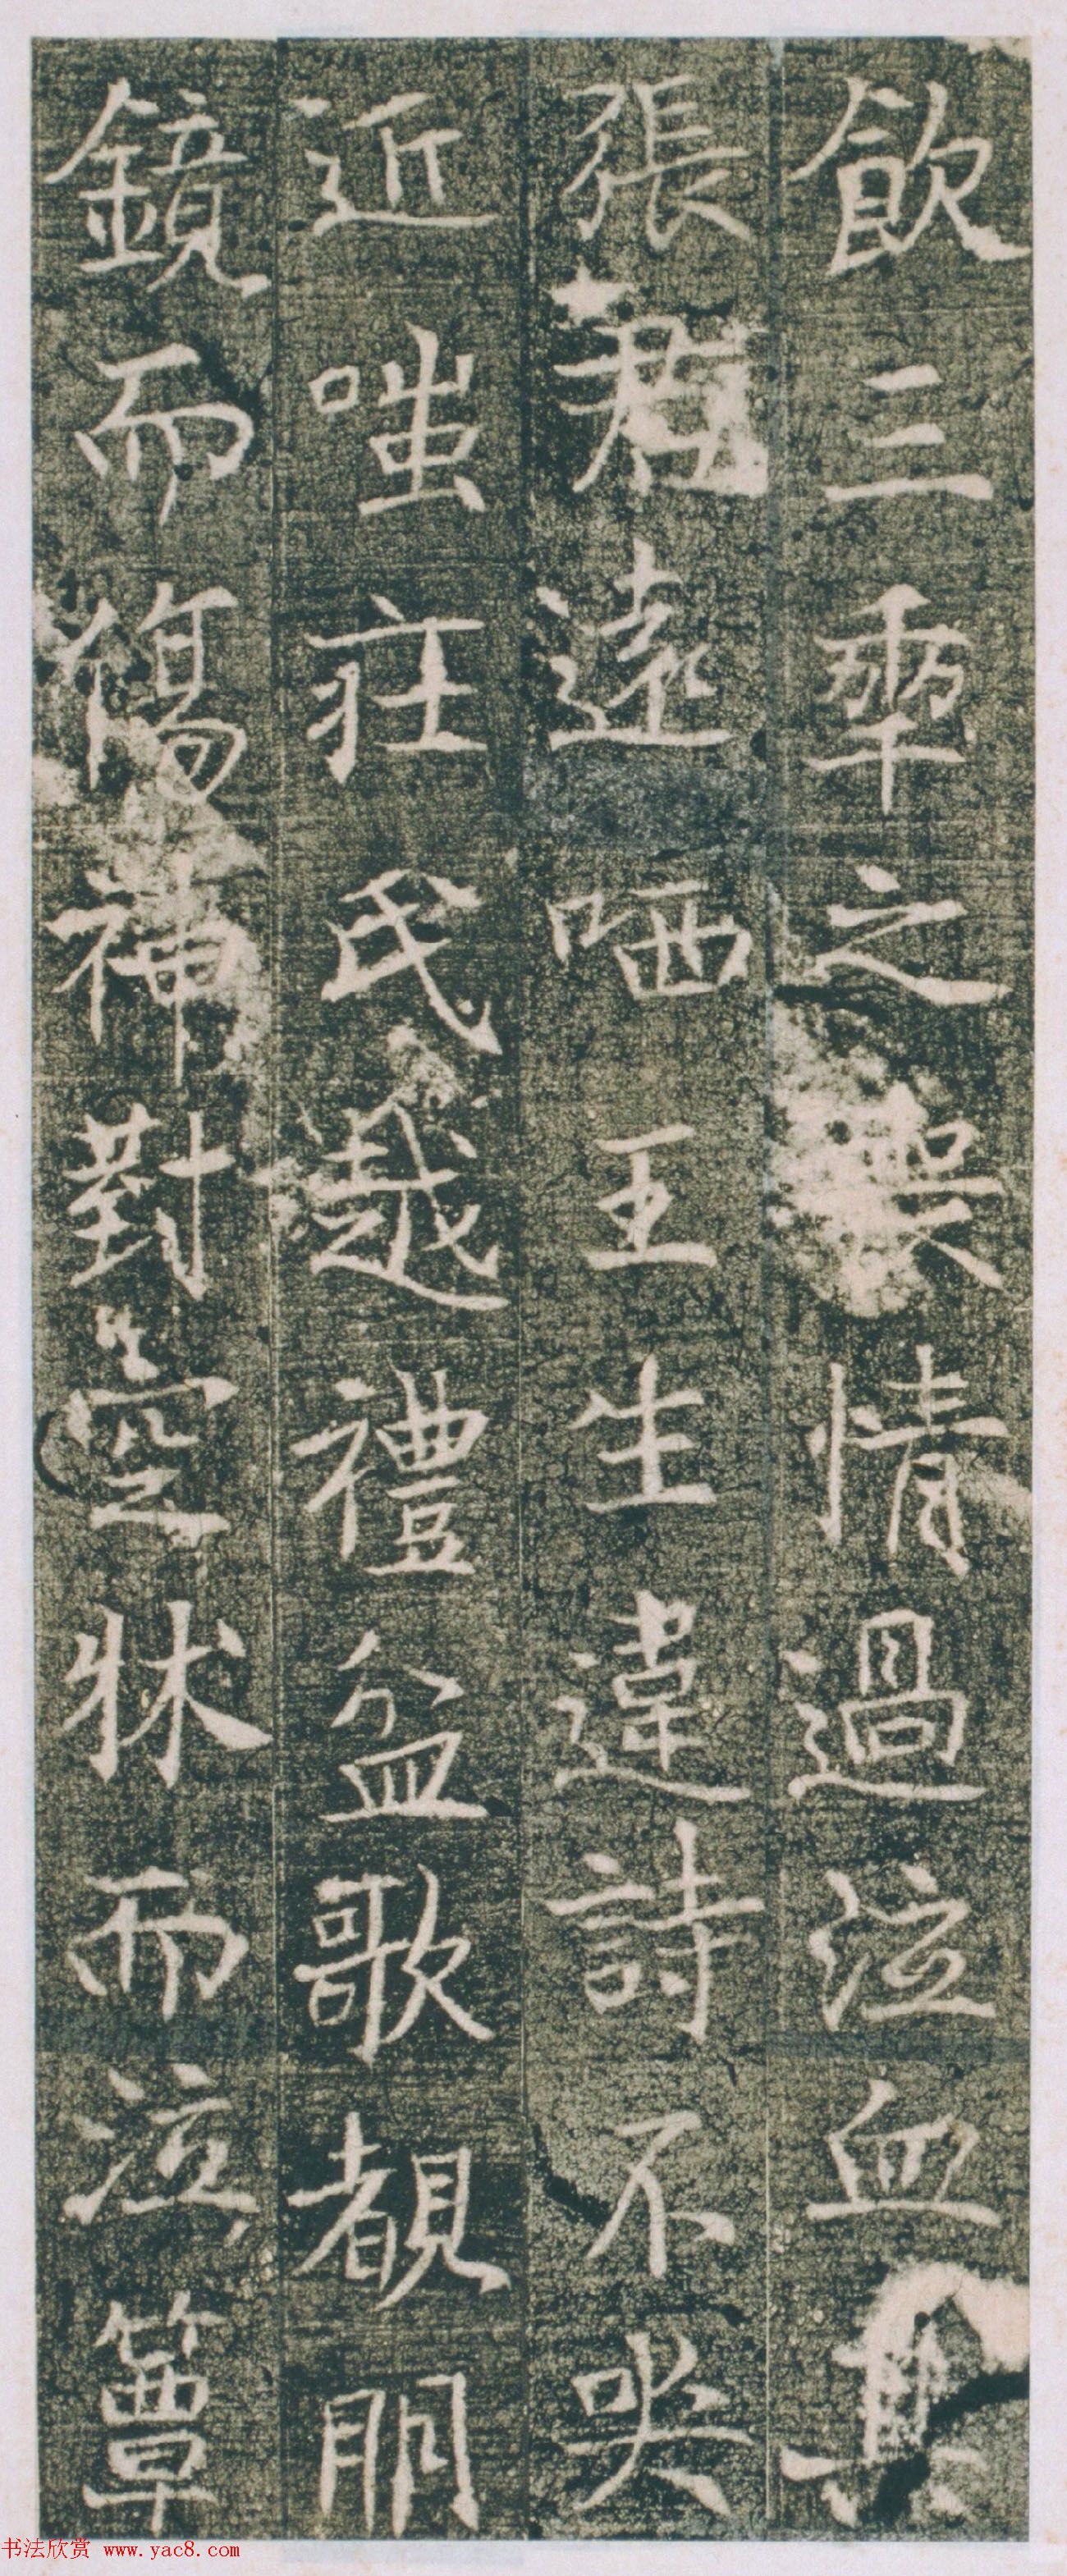 飲三之喪情過泣血其
張君遠陋王生違詩不哭
近嗤莊氏越禮盆歌覩明
鏡而傷神對空牀而泣簟
书法欣赏 www.yac8.com